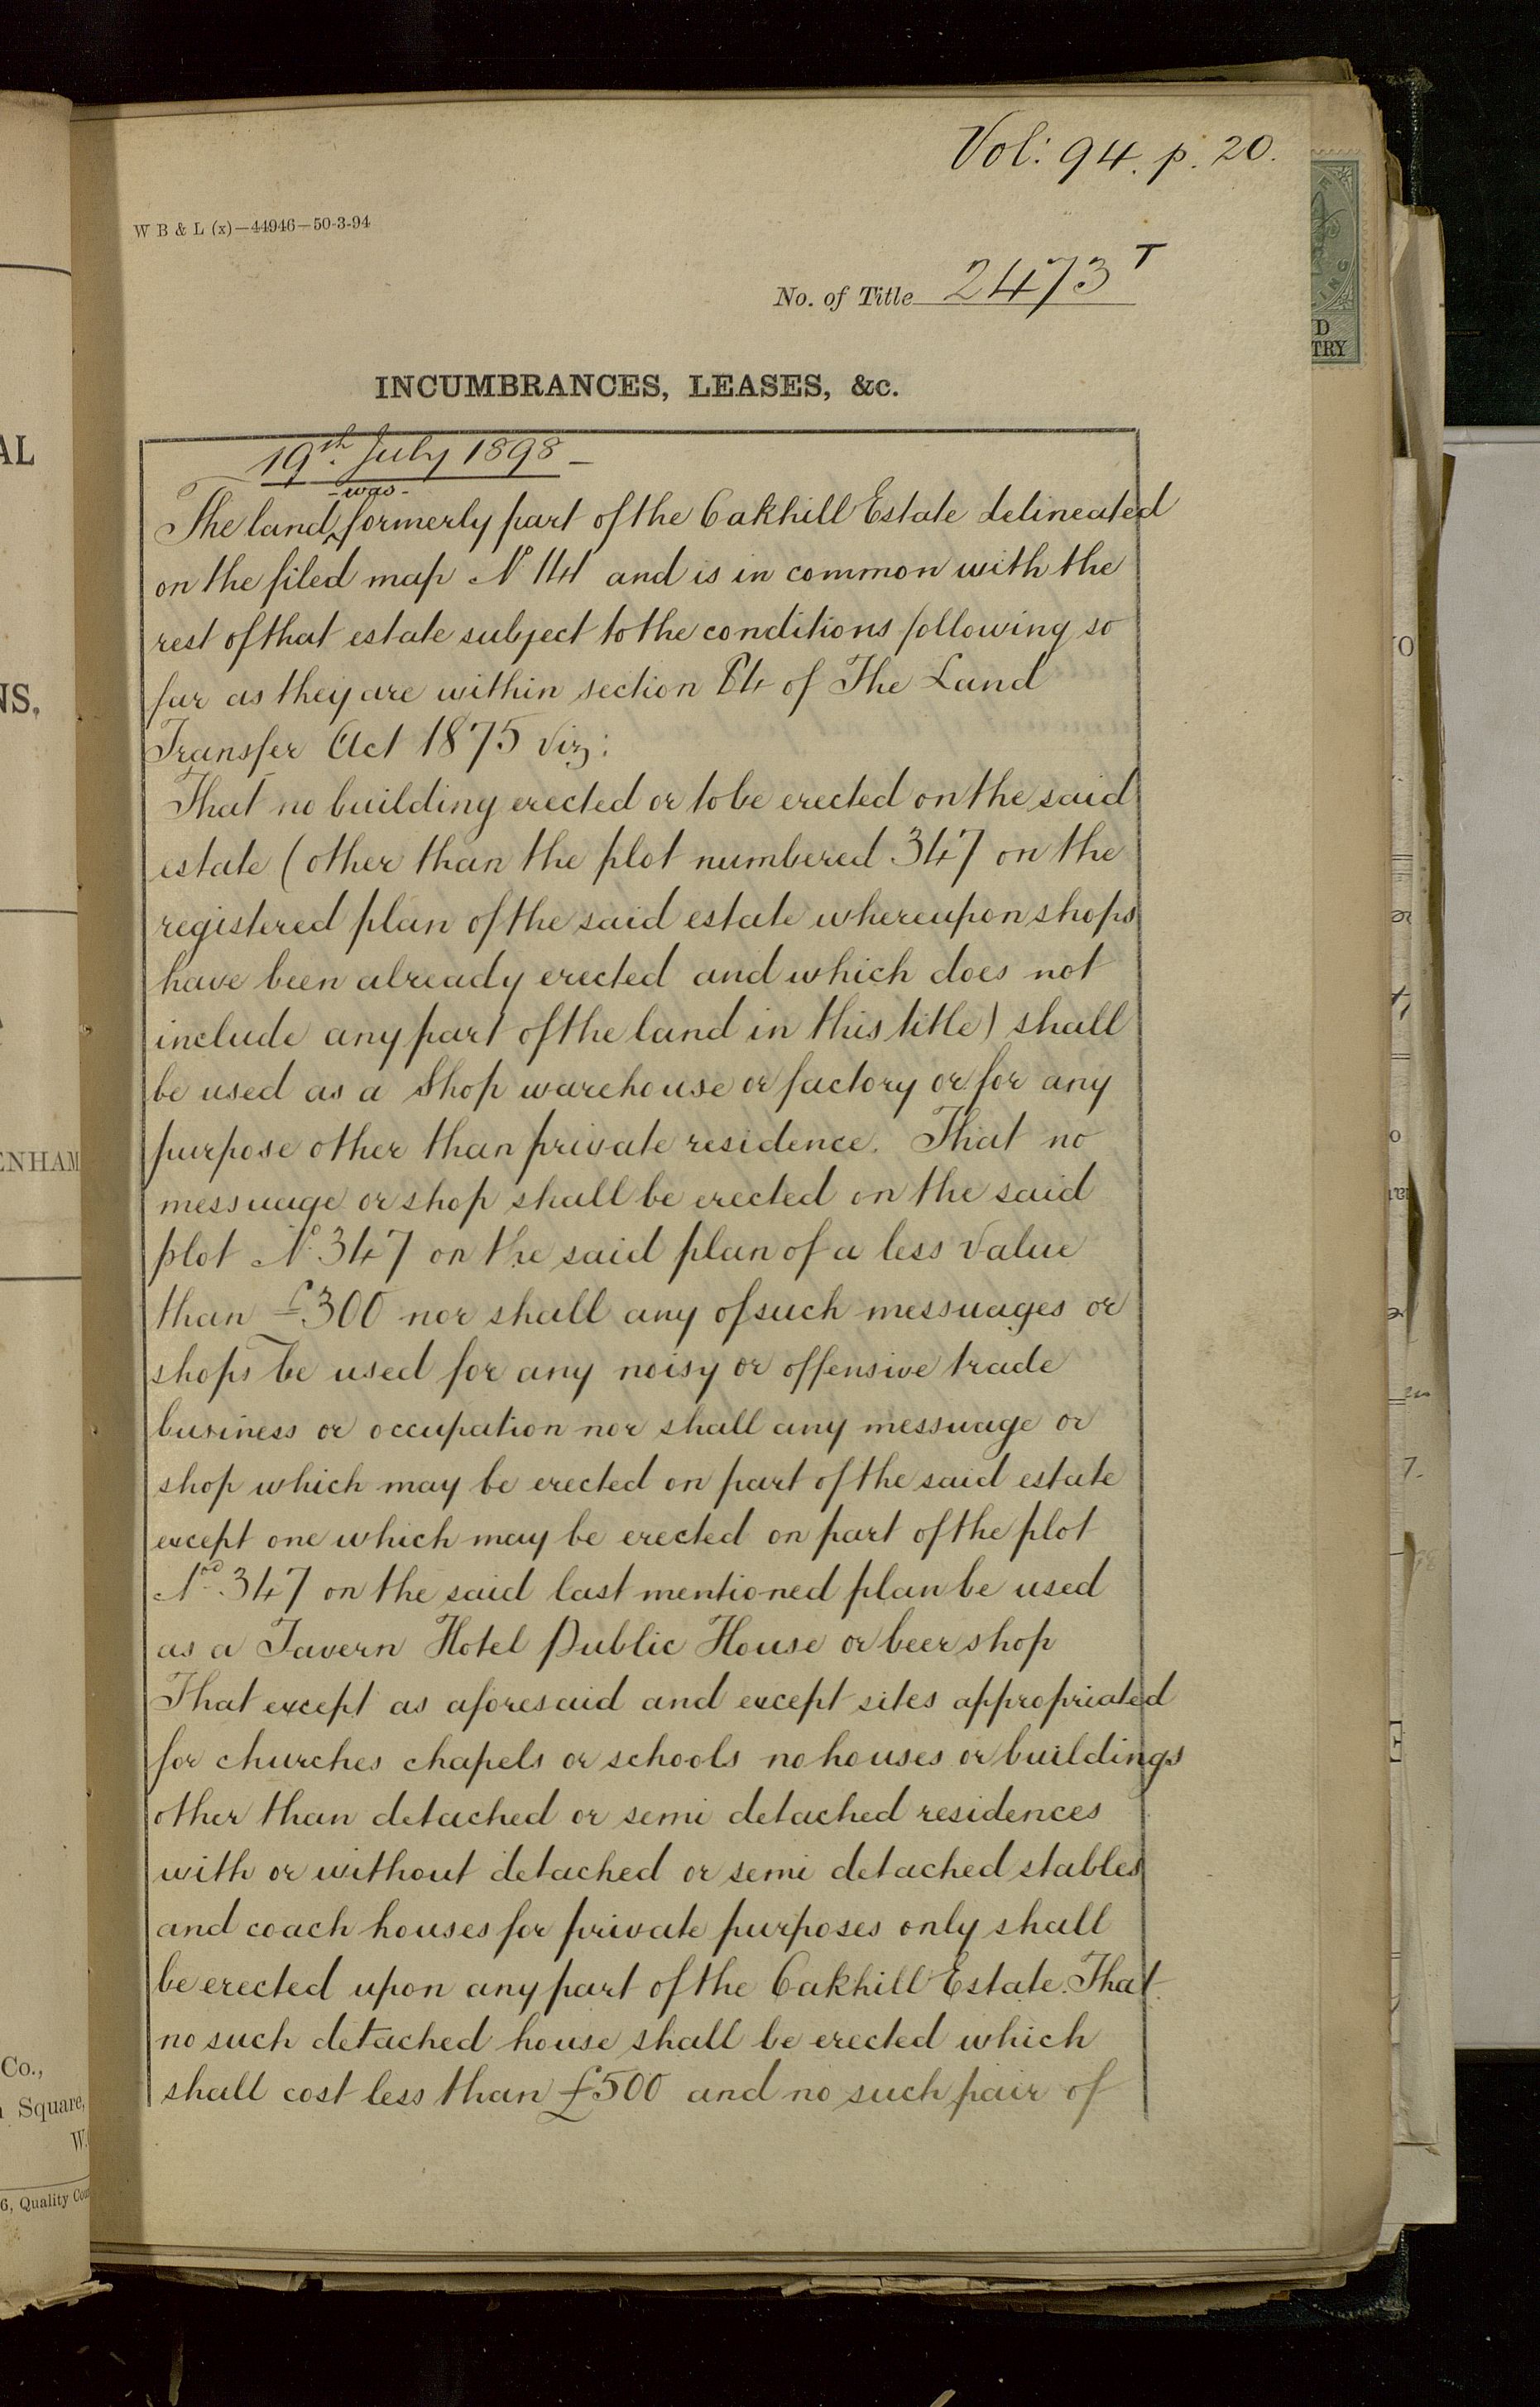 Vol: 94. p. 20.
W B & L (x)—44946—50-3-94
No. of Title 2473 T
INCUMBRANCES, LEASES, &c.
19th. July 1898 -
-was-
The land formerly part of the Oakhill Estate delineated
on the filed map No and is in common with the
rest of that estate subject to the conditions following so
far as they are within section 84 of The Land
Transfer Act 1875 viz:
That no building erected or to be erected on the said
estate (other than the plot numbered 347 on the
registered plan of the said estate whereupon shops
have been already erected and which does not
include any part of the land in this title) shall
be used as a Shop warehouse or factory or for any
purpose other than private residence. That no
messuage or shop shall be erected on the said
plot No. 347 on the said plan of a less value
than £300 nor shall any of such messuages or
shops be used for any noisy or offensive trade
business or occupation nor shall any messuage or
shop which may be erected on part of the said estate
except one which may be erected on part of the plot
No. 347 on the said last mentioned plan be used
as a Tavern Hotel Public House or beer shop
That except as aforesaid and except sites appropriated
for churches chapels or schools no houses or buildings
other than detached or semi detached residences
with or without detached or semi detached stables
and coach houses for private purposes only shall
be erected upon any part of the Oakhill Estate. That
no such detached house shall be erected which
shall cost less than £500 and no such pair of
AL
NS,
ENHAM
Co.,
Square,
W.
6, Quality Cou
D
TRY